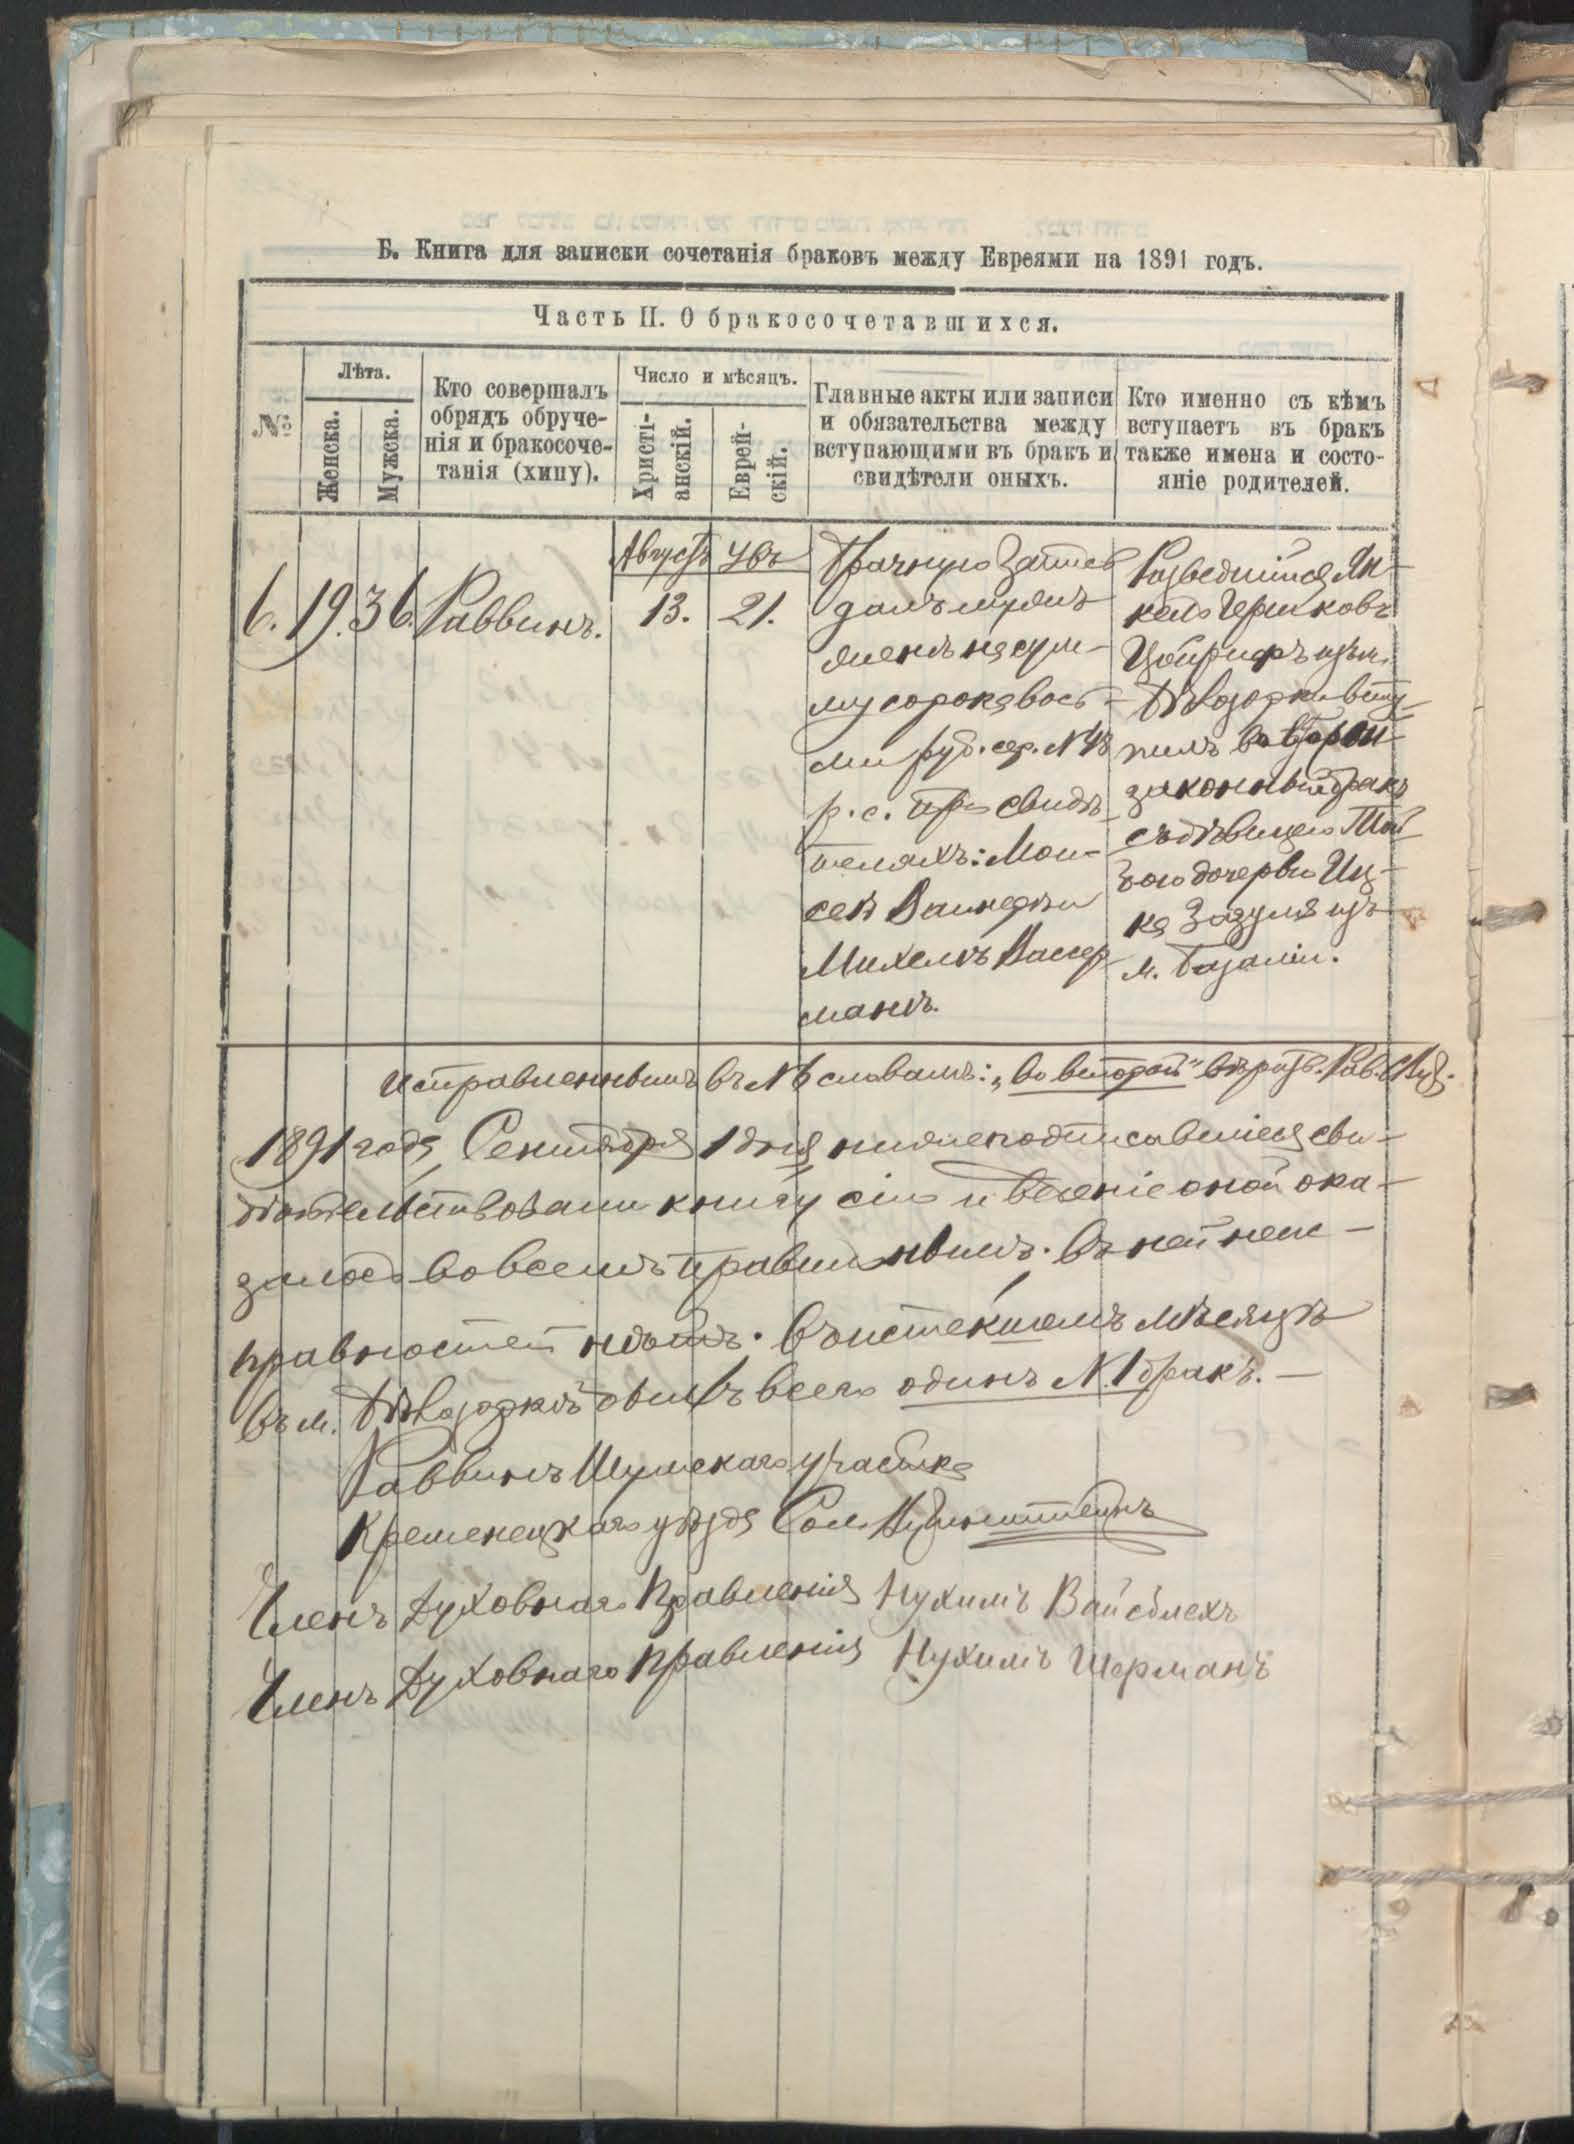 Б. Книга для записки сочетанія браковъ между Евреями на 1891 годъ.
Часть II. О бракосочетавшихся.
№
Лѣта.
Женска.
Мужска.
Кто совершалъ
обрядъ обруче-
нія и бракосоче-
танія (хипу).
Число и мѣсяцъ.
Христі-
анскій.
Еврей-
скій.
Главные акты или записи
и обязательства между
вступающими въ бракъ и
свидѣтели оныхъ.
Кто именно съ кѣмъ
вступаетъ въ бракъ
также имена и состо-
яніе родителей.
6.
19.
36.
Раввинъ.
Августъ
13.
Увъ
21.
Брачную запись
далъ мужъ
женѣ на сум-
му сорока вось-
ми руб. сер. N 48
р. с. при свидѣ-
теляхъ: Мои-
сей
Михель Вассер-
манъ.
Разведшійся Ян-
кель Гершковъ
изъ м.
Бѣлозорки всту-
пилъ во второй
законный бракъ
съ дѣвицею Той-
бою дочерью Иц-
ка Зозуля изъ
м. Базаліи.
Исправленнымъ въ N 6 словамъ: „во второй" вѣрить. Рав.
1891 года Сентября 1 дня нижеподписавшіеся сви-
дѣтельствовали книгу сію и веденіе оной ока-
залось во всемъ правильнымъ. Въ ней неис-
правностей нѣтъ. Въ истекшемъ мѣсяцѣ
въ м. Бѣлозоркѣ былъ всего одинъ N. 1 бракъ. —
Раввинъ Шумскаго участка
Кременецкаго уѣзда Сол.
Членъ Духовнаго Правленія Нухимъ Вайсблехъ
Членъ Духовнаго Правленія Нухимъ Шерманъ